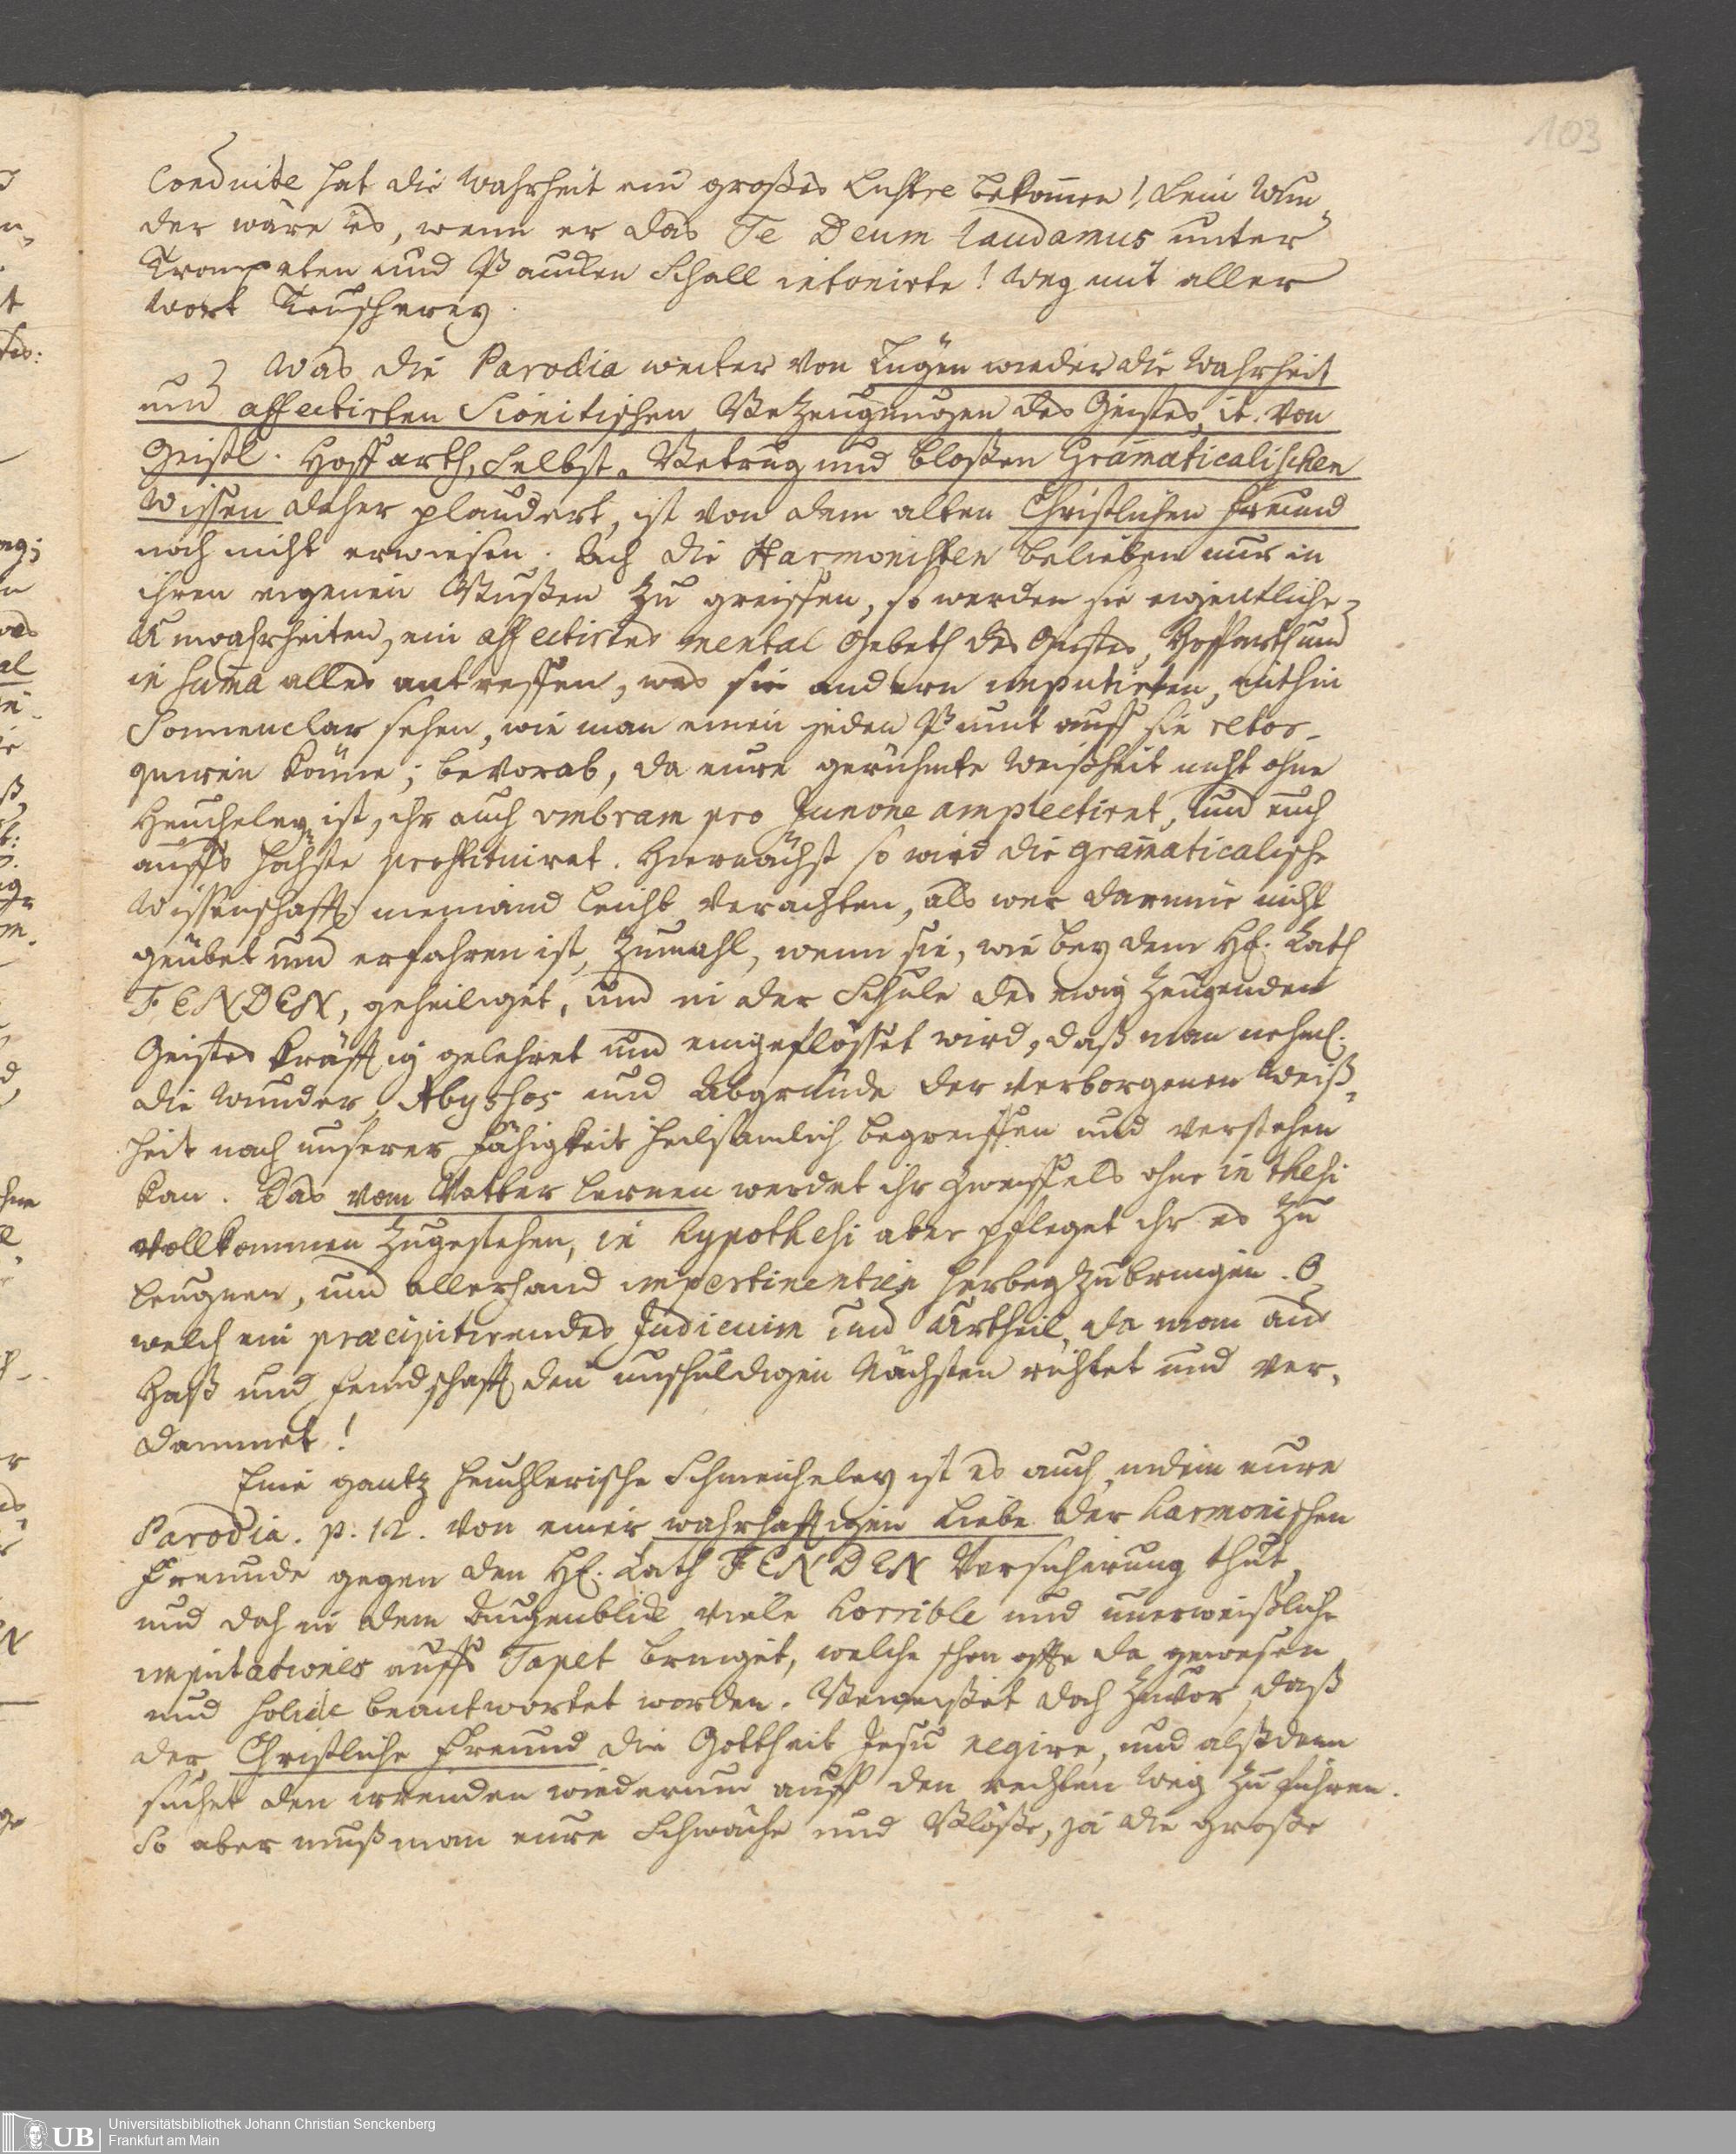 103
Conduite hat die Wahrheit ein großes Lustre bekom̅en! kein Wun„
der wäre es, wenn er das Te Deum laudamus unter
Trompeten und Paucken Schall intonirte! Weg mit aller
Wort Teuscherey.
Was die Parodia weiter von Lügen wieder die Wahrheit
und affectirten Sionitischen Bezeugungen des Geistes, it. von
Geistl. Hoffarth, Selbst-Betrug und bloßen Gram̅aticalischen
Wissen daher plaudert, ist von dem alten Christlichen Freund
noch nicht erwiesen. Ach die Harmonisten belieben nur in
ihren eigenen Bußen zu greiffen, so werden sie eigentliche
Unwahrheiten, ein affectirtes mental Gebeth des Geistes, Hoffarth und
in sum̅a alles antreffen, was sie andern imputirten, mithin
Sonnenclar sehen, wie man einen jeden Punct auff sie retor-
quiren könne; bevorab, da eure gerühmte Weißheit nicht ohne
Heucheley ist, ihr auch umbram pro Junone amplectiret, und euch
auffs höchste prostituiret. Hiernächst so wird die gram̅aticalische
Wissenschafft niemand leicht verachten, als wer darinnie nicht
geübet und erfahren ist, zumahl, wenn sie, wie bey dem H. Rath
FENDEN, geheiliget, und in der Schule des ewig zeugenden
Geistes kräfftig gelehret und eingeflösset wird, daß man nehml.
die Wunder, Abyssos und Abgründe der verborgenen Weiß„
heit nach unserer Fähigkeit heilsamlich begreiffen und verstehen
kan. Das vom Vatter lernen werdet ihr zweiffels ohne in thesi
vollkommen zugestehen, in hypothesi aber pfleget ihr es zu
leugnen, und allerhand impertinentien herbey zu bringen. O
welch ein præcipitirendes Judicium und Urtheil, da man aus
Haß und Feindschafft den unschuldigen Nächsten richtet und ver„
dammet!
Eine gantz heuchlerische Schmeicheley ist es auch, indem eure
Parodia. p. 12. von einer wahrhafftigen Liebe der harmonischen
Freunde gegen den H. Rath FENDEN Versicherung thut,
und doch in dem Augenblick viele horrible und unerweißliche
imputationes auffs Tapet bringet, welche schon offte da gewesen
und solide beantwortet worden. Beweißet doch zuvor, daß
der Christliche Freund die Gottheit Jesu negire, und alßdenn
suchet den irrenden wiederum auff den rechten Weg zu führen.
So aber muß man eure Schwäche und Blöße, ja die große
UB
Universitätsbibliothek Johann Christian Senckenberg
Frankfurt am Main